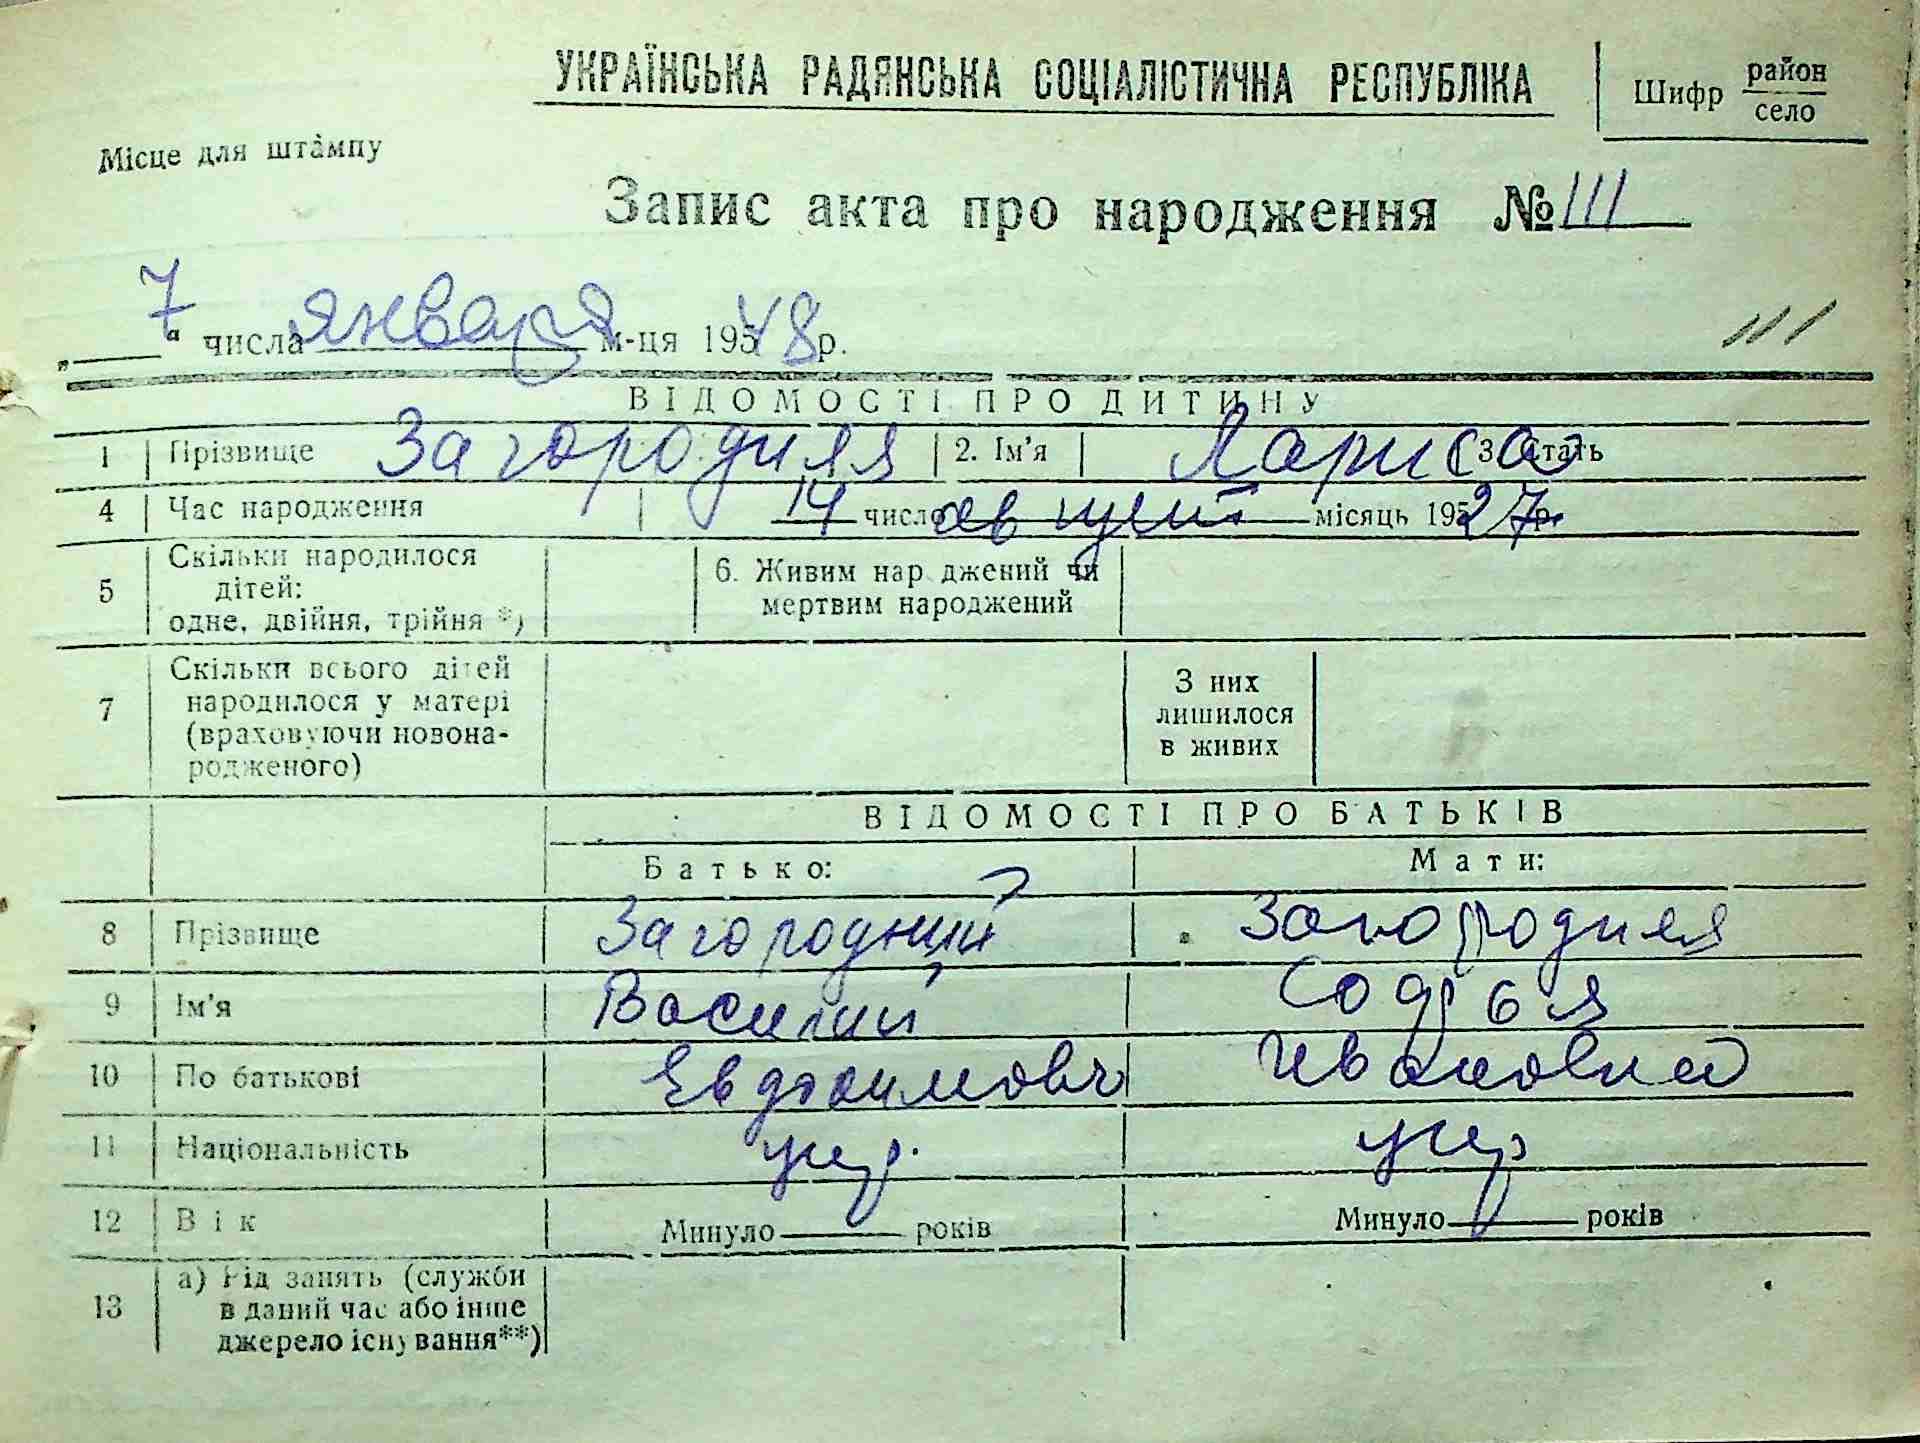 УКРАЇНСЬКА РАДЯНСЬКА СОЦІАЛІСТИЧНА РЕСПУБЛІКА
Шифр район село
Місце для штампу
Запис акта про народження № 111
„7“ числа января м-ця 195 48 р.
111
ВІДОМОСТІ ПРО ДИТИНУ
1 Прізвище Загородняя 2. Ім'я Лариса 3. Стать
4 Час народження 14 число август місяць 195 27 р.
5 Скільки народилося дітей: одне, двійня, трійня *) 6. Живим нар джений чи мертвим народжений
7 Скільки всього дітей народилося у матері (враховуючи новонародженого) З них лишилося в живих
ВІДОМОСТІ ПРО БАТЬКІВ
Батько: Мати:
8 Прізвище Загородний Загородняя
9 Ім'я Василий Софья
10 По батькові Евдокимович Ивановна
11 Національність укр. укр
12 Вік Минуло років Минуло років
13 а) Рід занять (служби в даний час або інше джерело існування**)